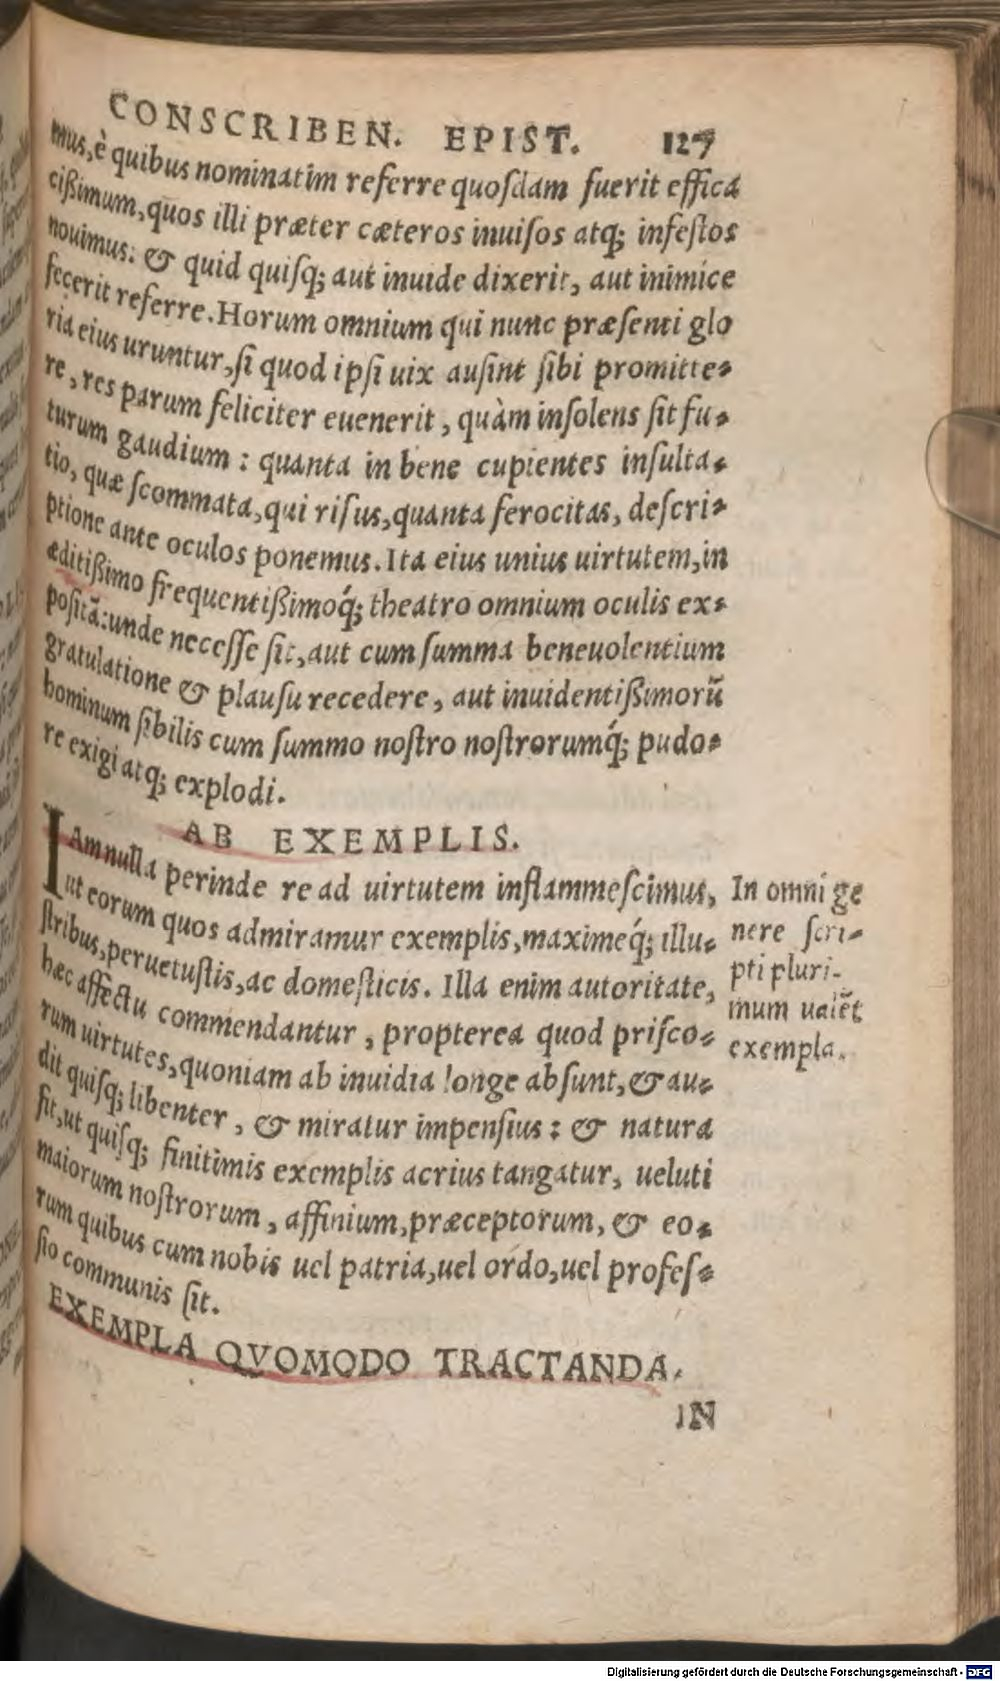 CONSCRIBEN. EPIST. 127
mus, è quibus nominatim referre quosdam fuerit effica
cißimum, quos illi præter cæteros inuisos atq; infestos
nouimus: & quid quisq; aut inuide dixerit, aut inimice
fecerit referre. Horum omnium qui nunc præsenti glo
ria eius uruntur, si quod ipsi uix ausint sibi promitte-
re, res parum feliciter euenerit, quàm insolens sit fu-
turum gaudium: quanta in bene cupientes insulta-
tio, quæ scommata, qui risus, quanta ferocitas, descri-
ptione ante oculos ponemus. Ita eius unius uirtutem, in
æditißimo frequentißimoq́; theatro omnium oculis ex-
positã: unde necesse sit, aut cum summa beneuolentium
gratulatione & plausu recedere, aut inuidentißimorũ
hominum sibilis cum summo nostro nostrorumq́; pudo-
re exigi atq; explodi.
AB EXEMPLIS.
IAm nulla perinde re ad uirtutem inflammescimus,
ut eorum quos admiramur exemplis, maximeq́; illu-
stribus, peruetustis, ac domesticis. Illa enim autoritate,
hæc affectu commendantur, propterea quod prisco-
rum uirtutes, quoniam ab inuidia longe absunt, & au-
dit quisq; libenter, & miratur impensius: & natura
fit, ut quisq; finitimis exemplis acrius tangatur, ueluti
maiorum nostrorum, affinium, præceptorum, & eo-
rum quibus cum nobis uel patria, uel ordo, uel profes-
sio communis sit.
EXEMPLA QVOMODO TRACTANDA.
IN
In omni ge
nere scri-
pti pluri-
mum ualẽt
exempla.
Digitalisierung gefördert durch die Deutsche Forschungsgemeinschaft - DFG